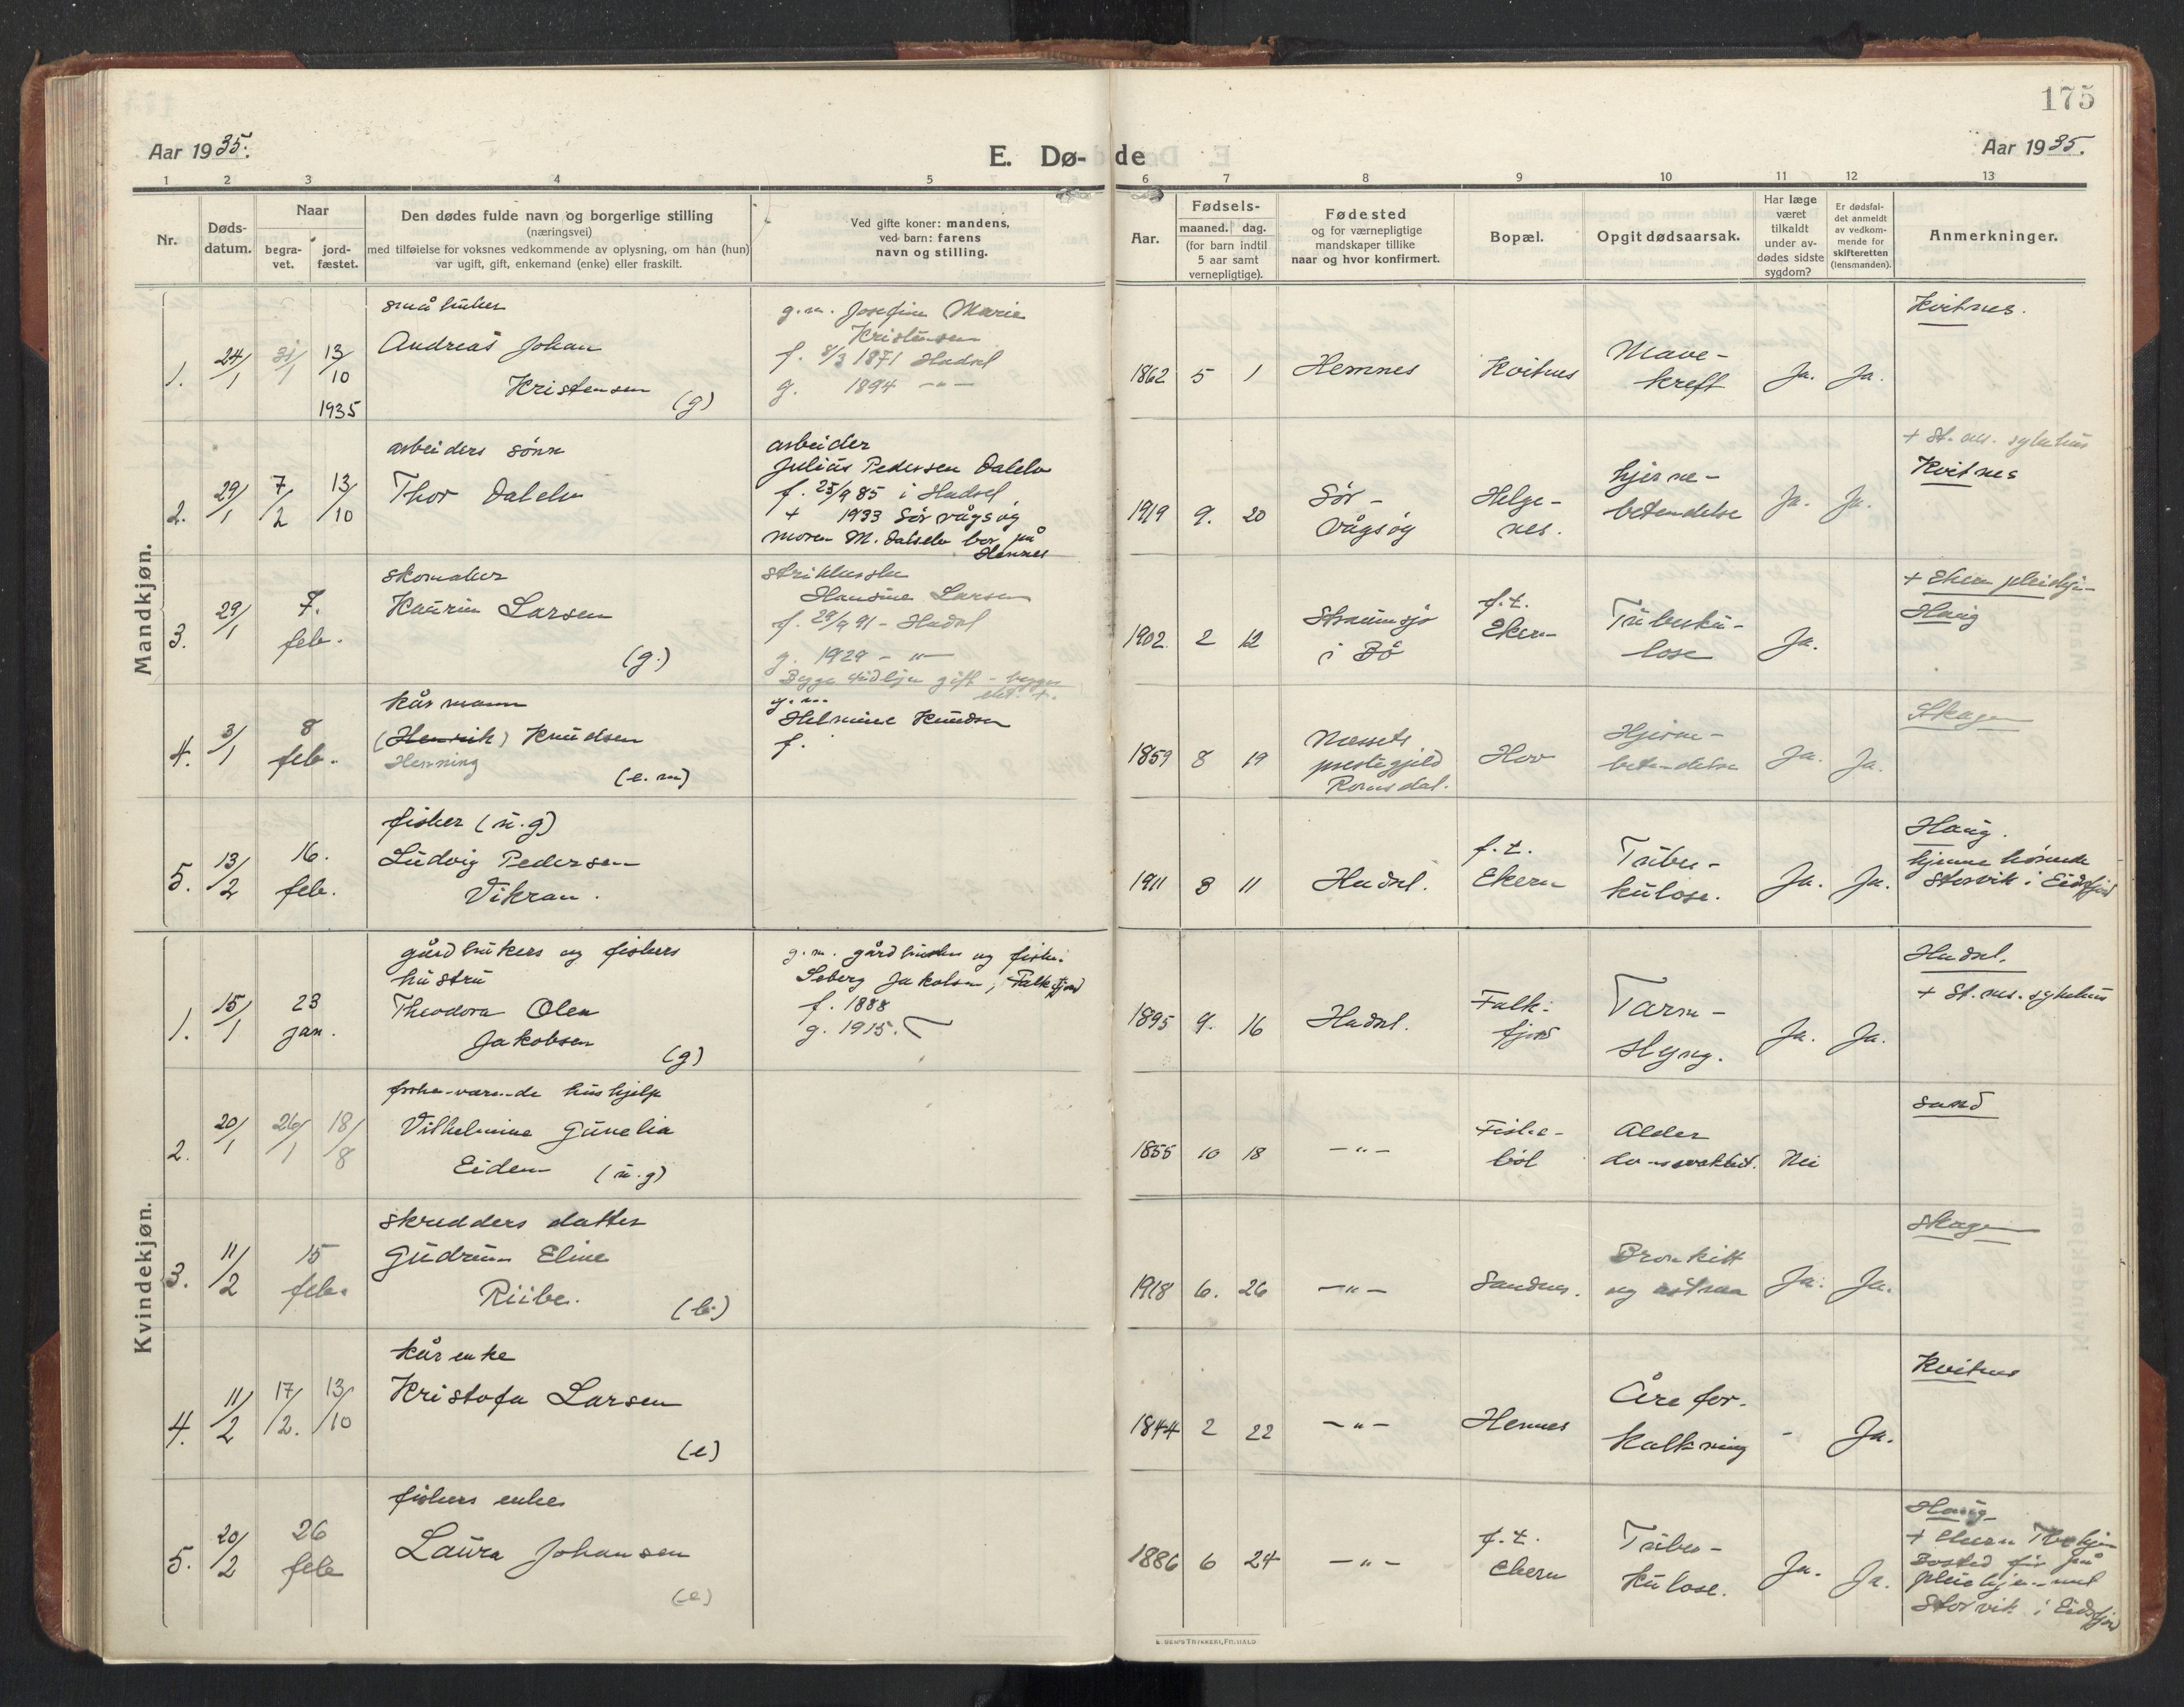 175
Aar 1935.
E. Dø-de
Aar 1935.
1 2 3 4 5 6 7 8 9 10 11 12 13
Nr.
Døds-
datum.
Naar
begra-
vet.
jord-
fæstet.
Den dødes fulde navn og borgerlige stilling
(næringsvei)
med tilføielse for voksnes vedkommende av oplysning, om han (hun)
var ugift, gift, enkemand (enke) eller fraskilt.
Ved gifte koner: mandens,
ved barn: farens
navn og stilling.
Aar.
Fødsels-
maaned. dag.
(for barn indtil
5 aar samt
vernepligtige).
Fødested
og for værnepligtige
mandskaper tillike
naar og hvor konfirmert.
Bopæl.
Opgit dødsaarsak.
Har læge
været
tilkaldt
under av-
dødes sidste
sygdom?
Er dødsfal-
det anmeldt
av vedkom-
mende for
skifteretten
(lensmanden).
Anmerkninger.
Mandkjøn.
1. 24/1 31/1 13/10 1935
småbruker
Andreas Johan
Kristensen (g)
g.m. Josefine Marie
Kristensen
f. 8/3 1871 Hadsel
g. 1894 -"-
1862 5 1 Hemnes Kvitnes
Mave-
kreft
Ja. Ja.
Kvitnes.
2. 29/1 7/2 13/10
arbeiders sönn
Thor Dalelv
arbeider
Julius Pedersen Dalelv
f. 25/9 85 i Hadsel
+ 1933 Sör vågsöy
moren M. Dalselv bor på
Hennes
1919 9. 20
Sör-
vågsöy
Helge-
nes.
hjerne-
betendelse
Ja. Ja.
+ St.ms. sykehus
Kvitnes
3. 29/1 7. feb.
skomaker
Kaurin Larsen
(g.)
Hansine Larsen
f. 29/9 91 - Hadsel
g. 1929 - "-
1902 2 12
Straumsjö
i Bö
f.t.
Ekern
Tuberku-
lose
Ja.
+ Ekern pleiehj-
Haug
4. 3/1 8 feb.
kårmann
(Henrik) Knudsen
Henning (e.m)
g.m.
Helmine Knudsen
f.
1859 8 19
Næssets
prestegjeld
Romsdal.
Hov
Hjerne-
betendelse
Ja. Ja.
Skagen
5. 13/2 16. feb.
fisker (u.g)
Ludvig Pedersen
Vikran.
1911 8 11 Hadsel.
f.t.
Ekern
Tuber-
kulose.
Ja. Ja.
Haug.
hjemmehörende
Storvik i Eidsfjord
Kvindekjøn.
1. 15/1 23 jan.
gårdbrukers og fiskers
hustru
Theodora Olea
Jakobsen (g)
g.m. gårdbruker og fisker
Seberg Jakobsen, Falkfjord
f. 1888
g. 1915.
1895 9. 16 Hadsel.
Falk-
fjord
Tarm-
slyng.
Ja. Ja.
Hadsel.
+ St.ms. sykehus
2. 20/1 26/1 18/8
forhenværende hushjelp
Vilhelmine Gunelia
Eidem (u.g)
1855 10 18 -"-
Fiske-
böl
Alder
domssvakhet.
Nei
Sand
3. 11/2 15 feb.
skredders datter
Gudrun Eline
Riiber. (b.)
1918 6. 26 -"- Sandnes.
Bronkitt
og astma
Ja. Ja.
Skagen
4. 11/2 17/2. 13/10
kårenke
Kristofa Larsen
(e)
1844 2 22 -"- Hennes
Åre for-
kalkning
- Ja.
Kvitnes
5. 20/2 26 feb
fiskers enke
Laura Johansen
(e)
1886 6 24 -"-
f.t.
Ekern
Tuber-
kulose.
Ja. Ja.
Haug
+ Ekern Tbc hjem
Bosted för på
pleiehjemmet
Storvik i Eidsfjord